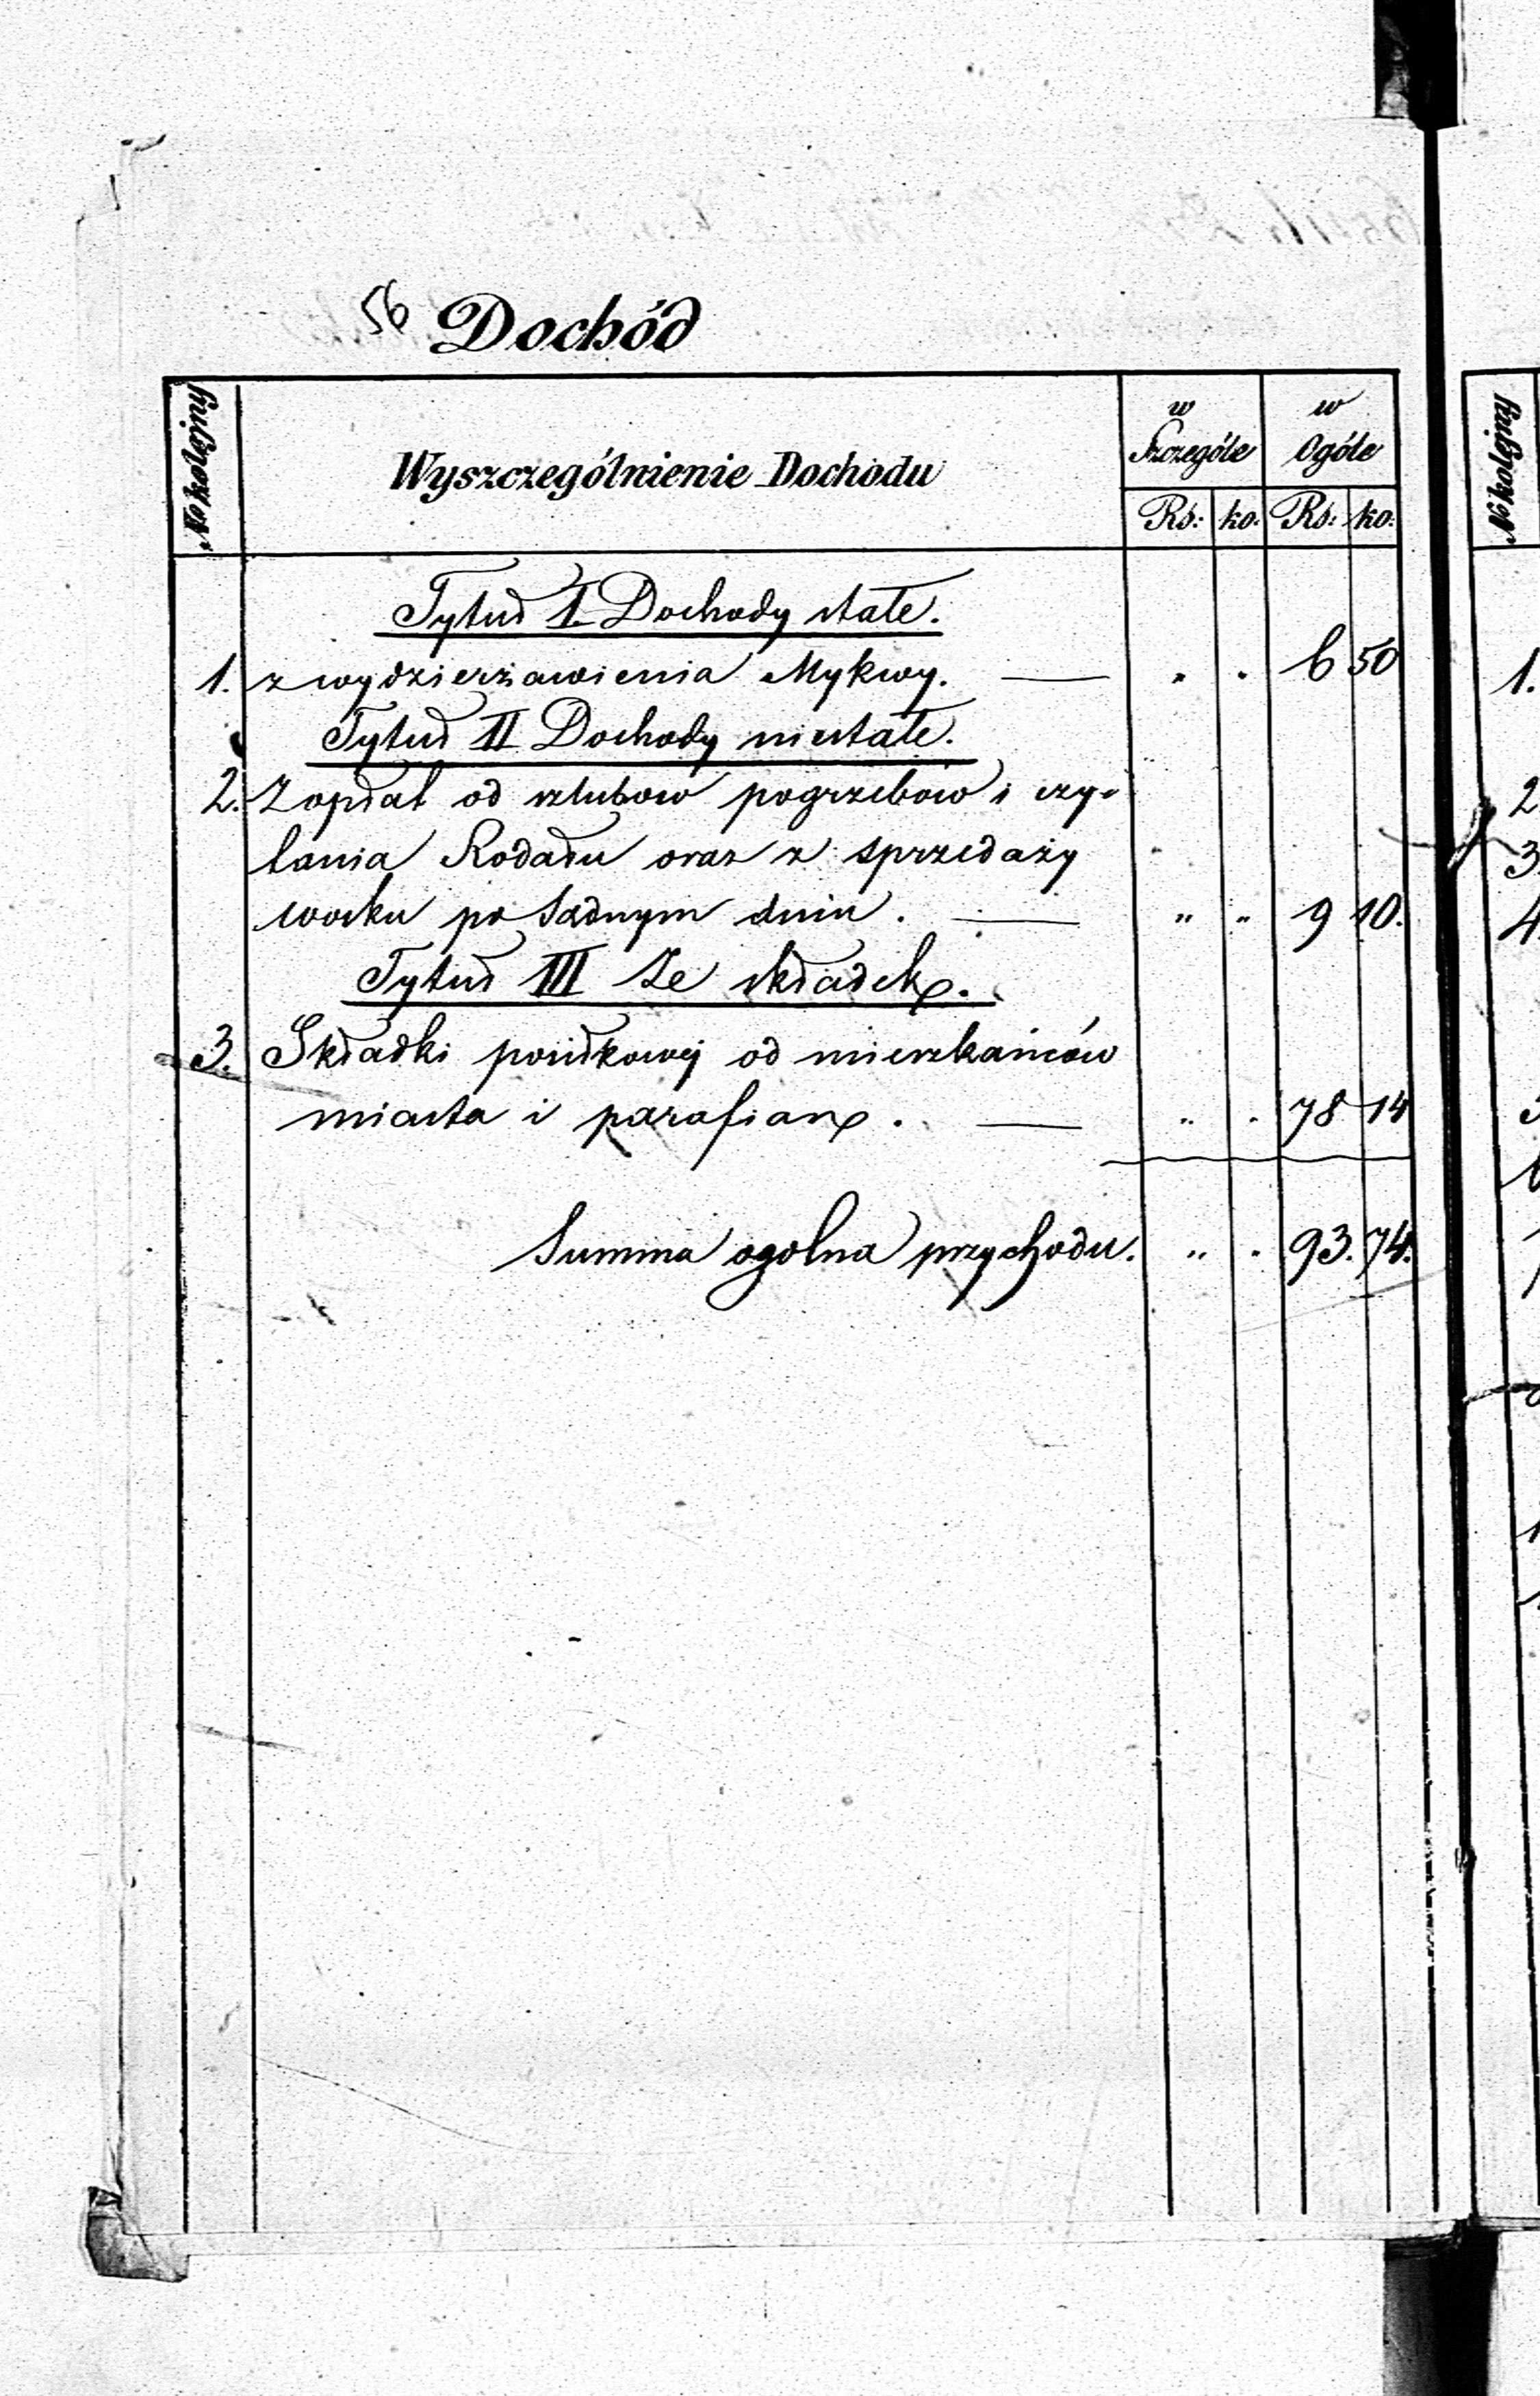 56 Dochód
No kolejny
Wyszczególnienie Dochodu
w Szczególe
w Ogóle
Rs: ko: Rs: ko:
Tytuł I Dochody stałe.
1. z wydzierżawienia Mykwy. — " " 6 50
Tytuł II Dochody niestałe.
2. Z opłat od szlubow pogrzebow i czy-
tania Rodału oraz z sprzedaży
wosku po Sadnym dniu. — " " 9 10.
Tytuł III Ze składek.
3. Składki posiłkowej od mieszkańców
miasta i parafian. — " " 78 14
Summa ogolna przychodu. " " 93. 74.
No kolejny
1.
2
3.
4